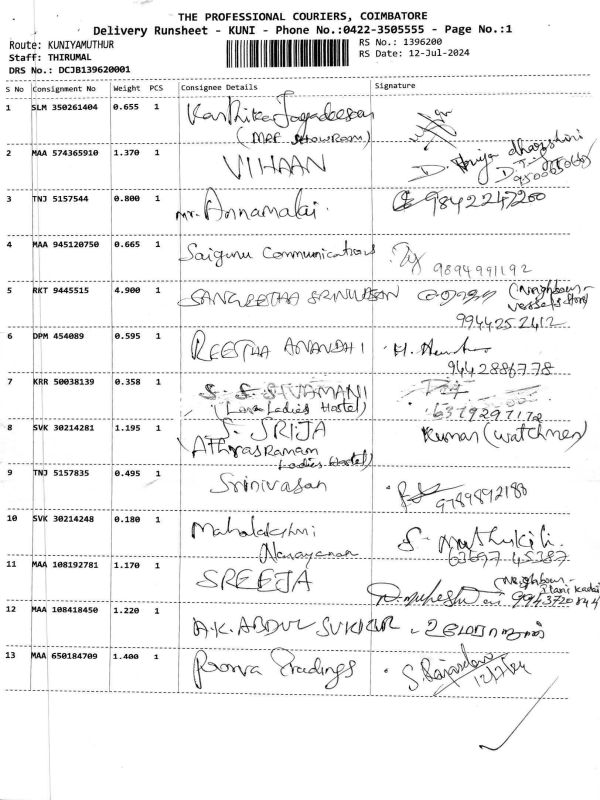 THE PROFESSIONAL COURIERS, COIMBATORE
Delivery Runsheet - KUNI - Phone No.:0422-3505555 - Page No.:1
Route: KUNIYAMUTHUR RS No.: 1396200
Staff: THIRUMAL RS Date: 12-Jul-2024
DRS No.: DCJB139620001
S No Consignment No Weight PCS Consignee Details Signature
1 SLM 350261404 0.655 1 Karthika Jagadeesan
(MRF Showroom)
2 MAA 574365910 1.370 1 VIHAAN D.
3 TNJ 5157544 0.800 1 Mr. Annamalai. 9842247200
4 MAA 945120750 0.665 1 Saiguru Communications
9894991192
5 RKT 9445515 4.900 1 SANGEETHAA SRINIVASAN (Neighbour-
9944252412
6 DPM 454089 0.595 1 REESTHA ANANDHI
9442886778
7 KRR 50038139 0.358 1 S. S. SIVAMANI
(Lava Ladies Hostel) 6379297172
8 SVK 30214281 1.195 1 S. SRIJA Kumar (watchmen)
Ladies Hostel)
9 TNJ 5157835 0.495 1 Srinivasan
9789892180
10 SVK 30214248 0.180 1 Mahalakshmi S. Muthukili.
Narayanan 63697 45387
11 MAA 108192781 1.170 1 SREEJA (Neighbour-
12 MAA 108418450 1.220 1 A.K. ABDUL SUKKUR
13 MAA 650184709 1.400 1 Poorva Tradings
12/7/24